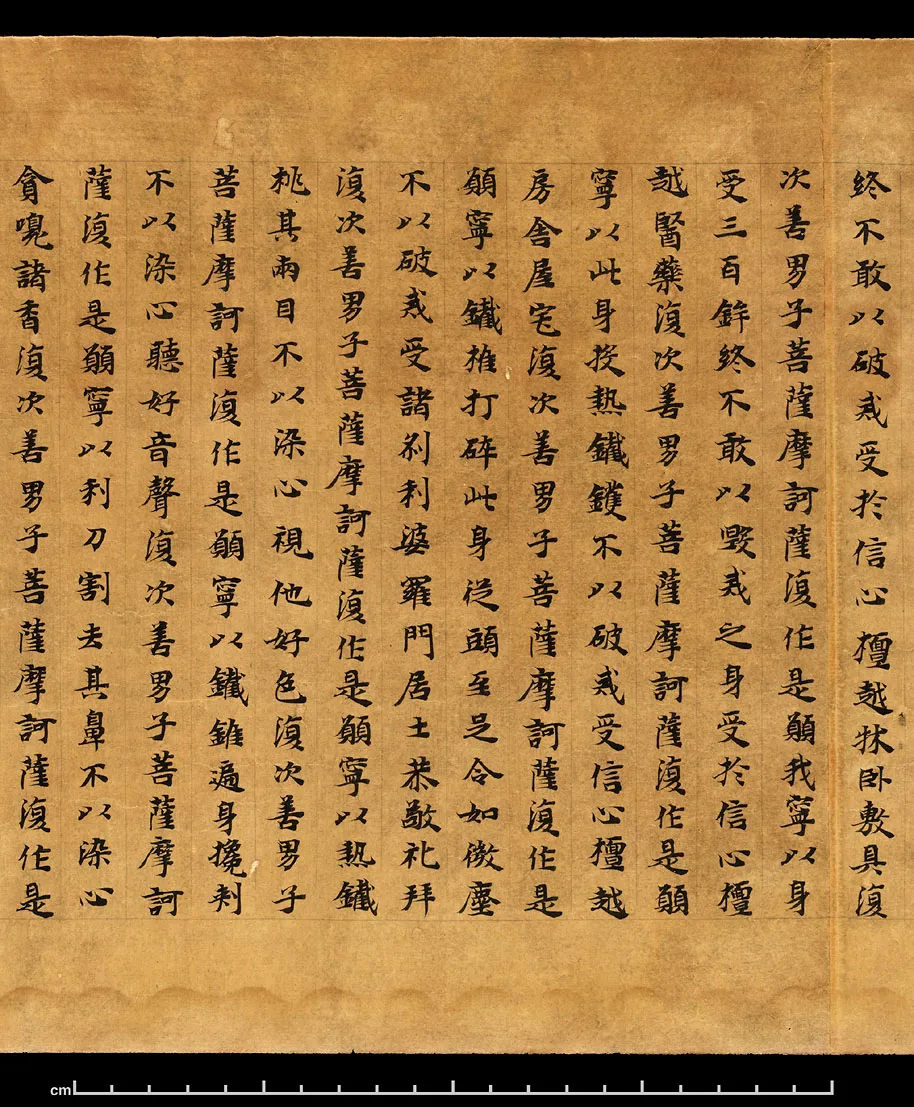 終不敢以破戒受於信心檀越牀卧敷具復
次善男子菩薩摩訶薩復作是願我寧以身
受三百鉾終不敢以毀戒之身受於信心檀
越醫藥復次善男子菩薩摩訶薩復作是願
寧以此身投熱鐵鑊不以破戒受信心檀越
房舎屋宅復次善男子菩薩摩訶薩復作是
願寧以鐵椎打碎此身從頭至足令如微塵
不以破戒受諸刹利婆羅門居士恭敬礼拜
復次善男子菩薩摩訶薩復作是願寧以熱鐵
桃其兩目不以染心視他好色復次善男子
菩薩摩訶薩復作是願寧以鐵錐遍身攙刺
不以染心聽好音聲復次善男子菩薩摩訶
薩復作是願寧以利刀割去其鼻不以染心
貪嗅諸香復次善男子菩薩摩訶薩復作是
cm